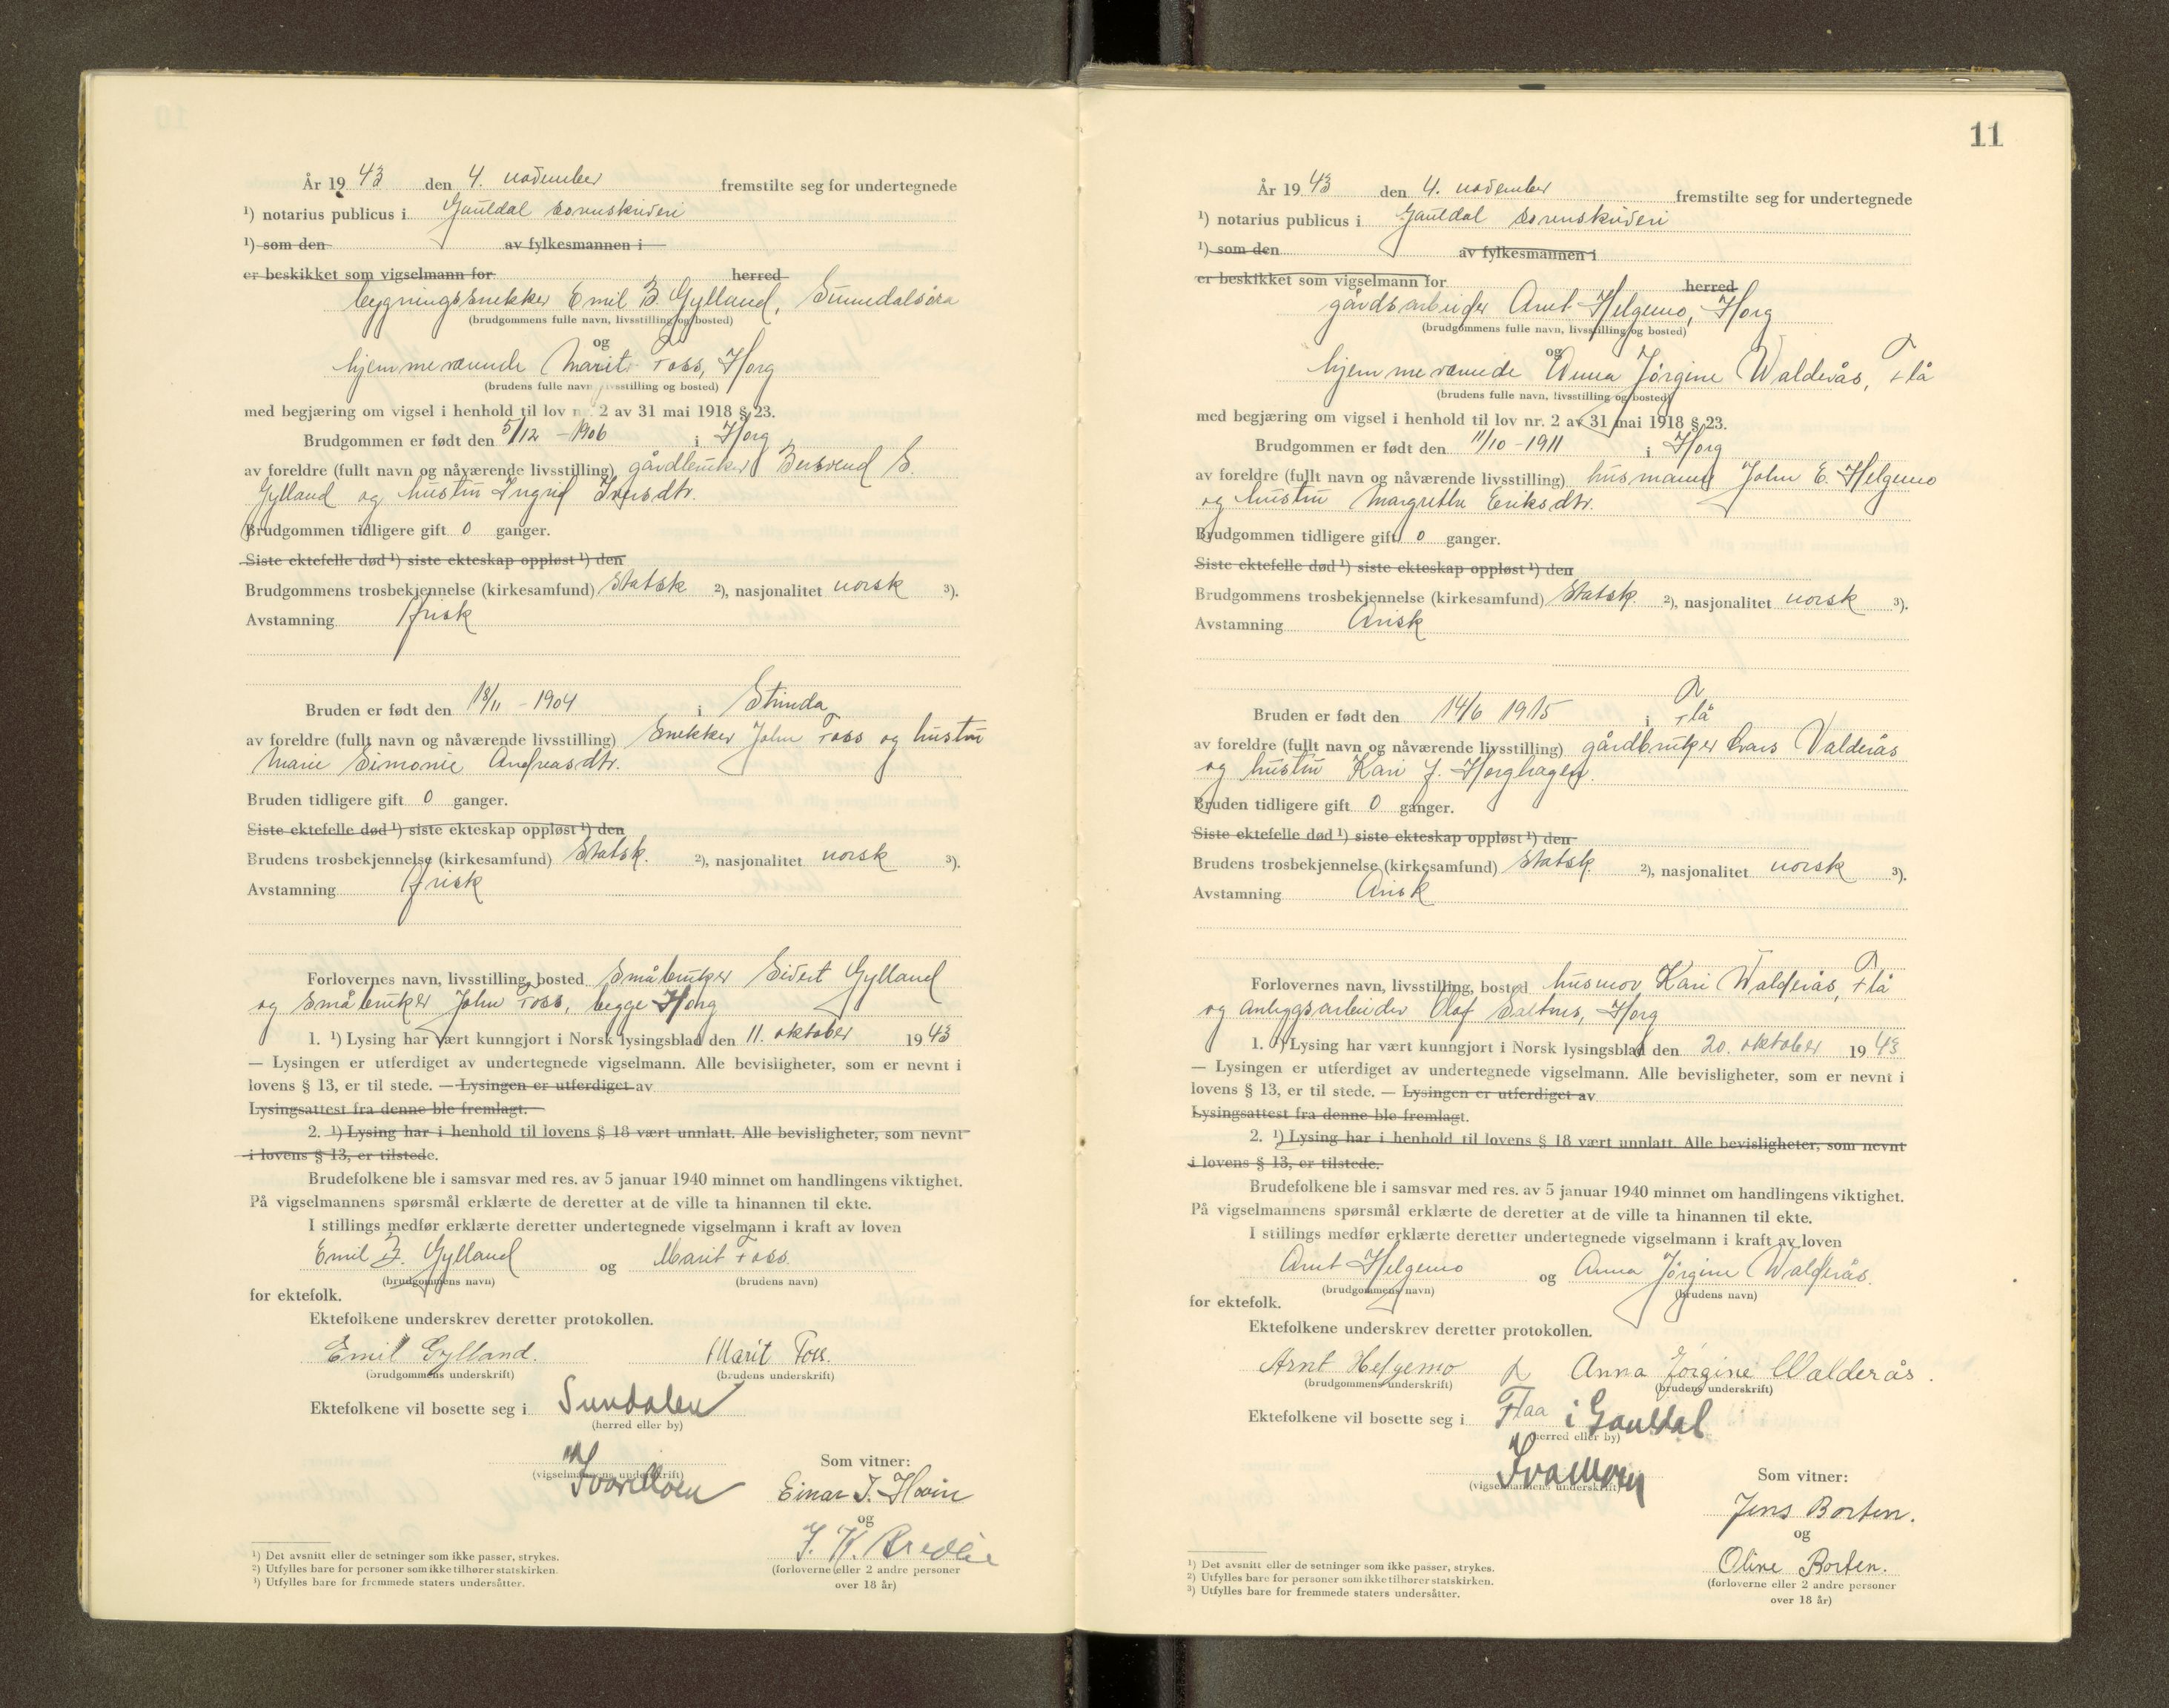 År 1943 den 4. november fremstilte seg for undertegnede
¹) notarius publicus i Gauldal sorenskriveri
¹) som den av fylkesmannen i
er beskikket som vigselmann for herred
bygningssnekker Emil B. Gylland, Sunndalsøra
(brudgommens fulle navn, livsstilling og bosted)
og
hjemmeværende Marit Foss, Horg
(brudens fulle navn, livsstilling og bosted)
med begjæring om vigsel i henhold til lov nr. 2 av 31 mai 1918 § 23.
Brudgommen er født den 5/12 - 1906 i Horg
av foreldre (fullt navn og nåværende livsstilling) gårdbruker Bersvend S.
Gylland og hustru Ingrid Iversdtr.
Brudgommen tidligere gift 0 ganger.
Siste ektefelle død ¹) siste ekteskap oppløst ¹) den
Brudgommens trosbekjennelse (kirkesamfund) Statsk ²), nasjonalitet norsk ³).
Avstamning Arisk
Bruden er født den 18/11 - 1904 i Strinda
av foreldre (fullt navn og nåværende livsstilling) Snekker John Foss og hustru
Marie Simonie Andreasdtr.
Bruden tidligere gift 0 ganger.
Siste ektefelle død ¹) siste ekteskap oppløst ¹) den
Brudens trosbekjennelse (kirkesamfund) Statsk. ²), nasjonalitet norsk ³).
Avstamning Arisk
Forlovernes navn, livsstilling, bosted Småbruker Sivert Gylland
og småbruker John Foss, begge Horg
1. ¹) Lysing har vært kunngjort i Norsk lysingsblad den 11. oktober 1943
— Lysingen er utferdiget av undertegnede vigselmann. Alle bevisligheter, som er nevnt i
lovens § 13, er til stede. — Lysingen er utferdiget av
Lysingsattest fra denne ble fremlagt.
2. ¹) Lysing har i henhold til lovens § 18 vært unnlatt. Alle bevisligheter, som nevnt
i lovens § 13, er tilstede.
Brudefolkene ble i samsvar med res. av 5 januar 1940 minnet om handlingens viktighet.
På vigselmannens spørsmål erklærte de deretter at de ville ta hinannen til ekte.
I stillings medfør erklærte deretter undertegnede vigselmann i kraft av loven
Emil B. Gylland og Marit Foss.
(brudgommens navn) (brudens navn)
for ektefolk.
Ektefolkene underskrev deretter protokollen.
Emil Gylland. Marit Foss.
(brudgommens underskrift) (brudens underskrift)
Ektefolkene vil bosette seg i Sundalen
(herred eller by)
(vigselmannens underskrift)
Som vitner:
Einar J. Hovin
og
(forloverne eller 2 andre personer
over 18 år)
¹) Det avsnitt eller de setninger som ikke passer, strykes.
²) Utfylles bare for personer som ikke tilhører statskirken.
³) Utfylles bare for fremmede staters undersåtter.
11
År 1943 den 4. november fremstilte seg for undertegnede
¹) notarius publicus i Gauldal sorenskriveri
¹) som den av fylkesmannen i
er beskikket som vigselmann for herred
gårdsarbeider Arnt Helgemo, Horg
(brudgommens fulle navn, livsstilling og bosted)
og
hjemmeværende Anna Jørgine Walderås, Flå
(brudens fulle navn, livsstilling og bosted)
med begjæring om vigsel i henhold til lov nr. 2 av 31 mai 1918 § 23.
Brudgommen er født den 11/10 - 1911 i Horg
av foreldre (fullt navn og nåværende livsstilling) husmann John E. Helgemo
og hustru Margrethe Eriksdtr.
Brudgommen tidligere gift 0 ganger.
Siste ektefelle død ¹) siste ekteskap oppløst ¹) den
Brudgommens trosbekjennelse (kirkesamfund) Statsk. ²), nasjonalitet norsk ³).
Avstamning Arisk
Bruden er født den 14/6 1915 i Flå
av foreldre (fullt navn og nåværende livsstilling) gårdbruker Lars Valderås
og hustru Kari J. Horghagen.
Bruden tidligere gift 0 ganger.
Siste ektefelle død ¹) siste ekteskap oppløst ¹) den
Brudens trosbekjennelse (kirkesamfund) Statsk. ²), nasjonalitet norsk ³).
Avstamning Arisk
Forlovernes navn, livsstilling, bosted husmor Kari Walderås, Flå
og anleggsarbeider Olof Saltnes, Horg
1. ¹) Lysing har vært kunngjort i Norsk lysingsblad den 20. oktober 1943
— Lysingen er utferdiget av undertegnede vigselmann. Alle bevisligheter, som er nevnt i
lovens § 13, er til stede. — Lysingen er utferdiget av
Lysingsattest fra denne ble fremlagt.
2. ¹) Lysing har i henhold til lovens § 18 vært unnlatt. Alle bevisligheter, som nevnt
i lovens § 13, er tilstede.
Brudefolkene ble i samsvar med res. av 5 januar 1940 minnet om handlingens viktighet.
På vigselmannens spørsmål erklærte de deretter at de ville ta hinannen til ekte.
I stillings medfør erklærte deretter undertegnede vigselmann i kraft av loven
Arnt Helgemo og Anna Jørgine Walderås.
(brudgommens navn) (brudens navn)
for ektefolk.
Ektefolkene underskrev deretter protokollen.
Arnt Helgemo Anna Jørgine Walderås.
(brudgommens underskrift) (brudens underskrift)
Ektefolkene vil bosette seg i Flaa i Gauldal
(herred eller by)
(vigselmannens underskrift)
Som vitner:
Jens Borten.
og
Oline Borten.
(forloverne eller 2 andre personer
over 18 år)
¹) Det avsnitt eller de setninger som ikke passer, strykes.
²) Utfylles bare for personer som ikke tilhører statskirken.
³) Utfylles bare for fremmede staters undersåtter.